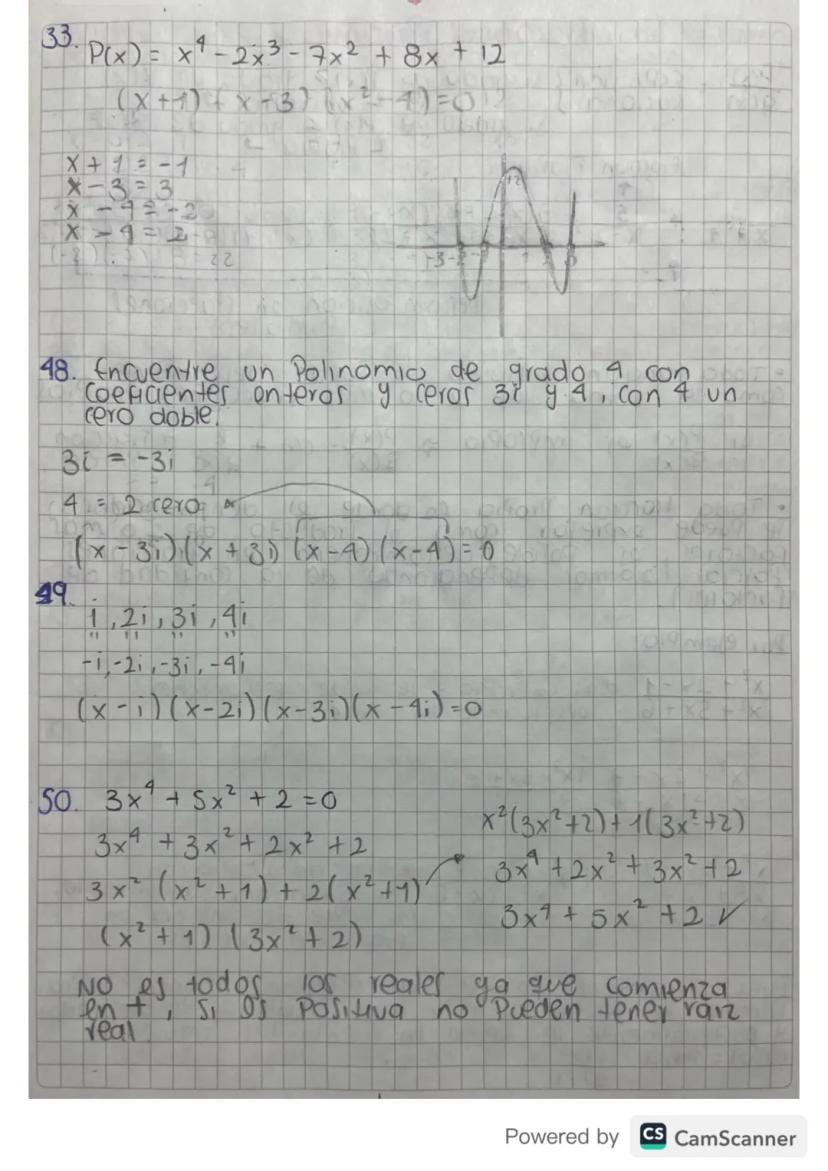 33. P(x) = x⁴ - 2x³ - 7x² + 8x + 12
(x+1) (x-3) (x² - 4) = 0
x + 1 = -1
x - 3 = 3
x - 4 = -2
x - 4 = 2
12
-3 -2
48. Encuentre un Polinomio de grado 4 con
coeficientes enteros y ceros 3i y 4, con 4 un
cero doble.
3i = -3i
4 = 2 cero
(x - 3i) (x + 3i) (x-4) (x-4) = 0
49.
i, 2i, 3i, 4i
-i, -2i, -3i, -4i
(x - i) (x-2i) (x-3i) (x - 4i) = 0
50. 3x⁴ + 5x² + 2 = 0
3x⁴ + 3x² + 2x² + 2
3x² (x² + 1) + 2(x² + 1)
(x² + 1) (3x² + 2)
x²(3x²+2) + 1(3x²+2)
3x⁴ + 2x² + 3x² + 2
3x⁴ + 5x² + 2 ✓
No es todos los reales ya que comienza
en +, si es Positiva no Pueden tener raiz
real
Powered by CS CamScanner